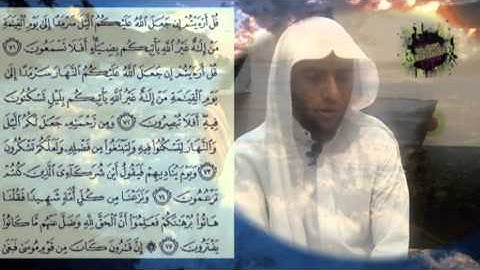 قُلْ أَرَءَيْتُمْ إِن جَعَلَ ٱللَّهُ عَلَيْكُمُ ٱلَّيْلَ سَرْمَدًا إِلَىٰ يَوْمِ ٱلْقِيَـٰمَةِ
مَنْ إِلَـٰهٌ غَيْرُ ٱللَّهِ يَأْتِيكُم بِضِيَآءٍ أَفَلَا تَسْمَعُونَ ٧١
قُلْ أَرَءَيْتُمْ إِن جَعَلَ ٱللَّهُ عَلَيْكُمُ ٱلنَّهَارَ سَرْمَدًا إِلَىٰ
يَوْمِ ٱلْقِيَـٰمَةِ مَنْ إِلَـٰهٌ غَيْرُ ٱللَّهِ يَأْتِيكُم بِلَيْلٍ تَسْكُنُونَ
فِيهِ أَفَلَا تُبْصِرُونَ ٧٢ وَمِن رَّحْمَتِهِ جَعَلَ لَكُمُ ٱلَّيْلَ
وَٱلنَّهَارَ لِتَسْكُنُوا۟ فِيهِ وَلِتَبْتَغُوا۟ مِن فَضْلِهِ وَلَعَلَّكُمْ تَشْكُرُونَ
٧٣ وَيَوْمَ يُنَادِيهِمْ فَيَقُولُ أَيْنَ شُرَكَآءِىَ ٱلَّذِينَ كُنتُمْ
تَزْعُمُونَ ٧٤ وَنَزَعْنَا مِن كُلِّ أُمَّةٍ شَهِيدًا فَقُلْنَا
هَاتُوا۟ بُرْهَـٰنَكُمْ فَعَلِمُوٓا۟ أَنَّ ٱلْحَقَّ لِلَّهِ وَضَلَّ عَنْهُم مَّا كَانُوا۟
يَفْتَرُونَ ٧٥ إِنَّ قَـٰرُونَ كَانَ مِن قَوْمِ مُوسَىٰ فَبَغَىٰ